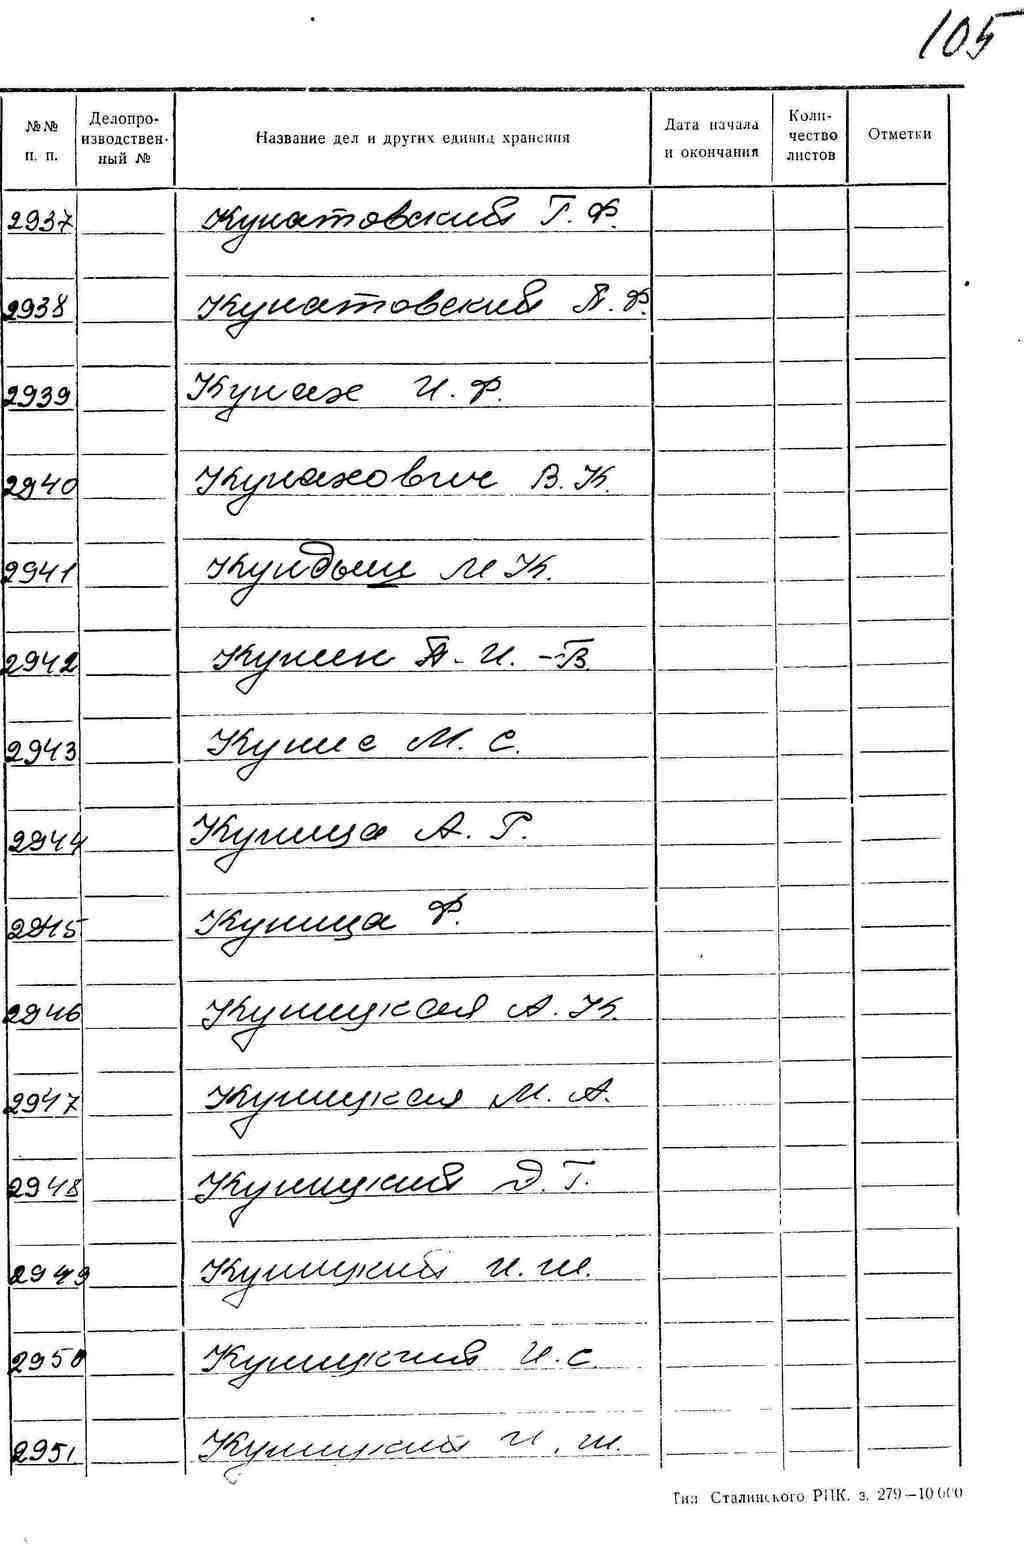 105
№№ п. п.
Делопро-
изводствен-
ный №
Название дел и других единиц хранения
Дата начала
и окончания
Коли-
чество
листов
Отметки
2937 Кунатовский Г. Ф.
2938 Кунатовский П. Ф.
2939 Кунах И. Ф.
2940 Кунахович В. К.
2941 Кундыш М К.
2942 И. -В.
2943 Кунис М. С.
2944 Куница А. Г.
2945 Куница Ф.
2946 Куницкая А. К.
2947 Куницкая М. А.
2948 Куницкий Д. Г.
2949 Куницкий И. Ш.
2950 Куницкий И. С.
2951 Куницкий И. Ш.
Тип Сталинского РПК. з. 279—10 000